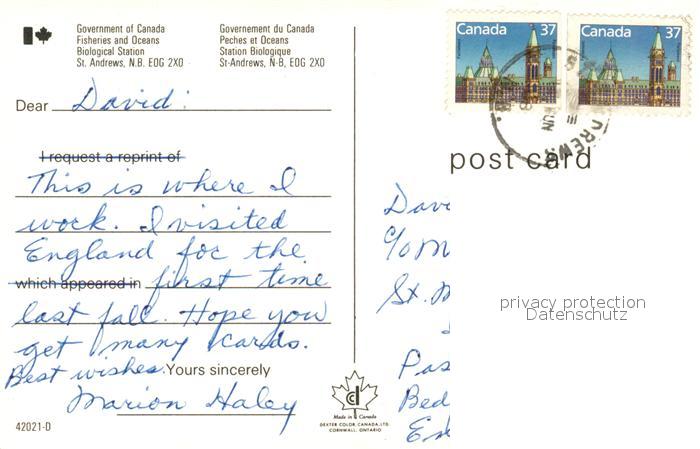 Government of Canada
Fisheries and Oceans
Biological Station
St. Andrews, N.B. EOG 2X0
Gouvernement du Canada
Peches et Oceans
Station Biologique
St-Andrews, N-B, EOG 2X0
Canada 37
Canada 37
Dear David:
post card
I request a reprint of
This is where I
work. I visited
England for the
which appeared in first time
last fall. Hope you
get many cards.
Best wishes. Yours sincerely
Marion Haley
42021-D
Made in Canada
DEXTER COLOR, CANADA, LTD.
CORNWALL, ONTARIO
Dav
c/o M
St. M
Pas
Bed
privacy protection
Datenschutz